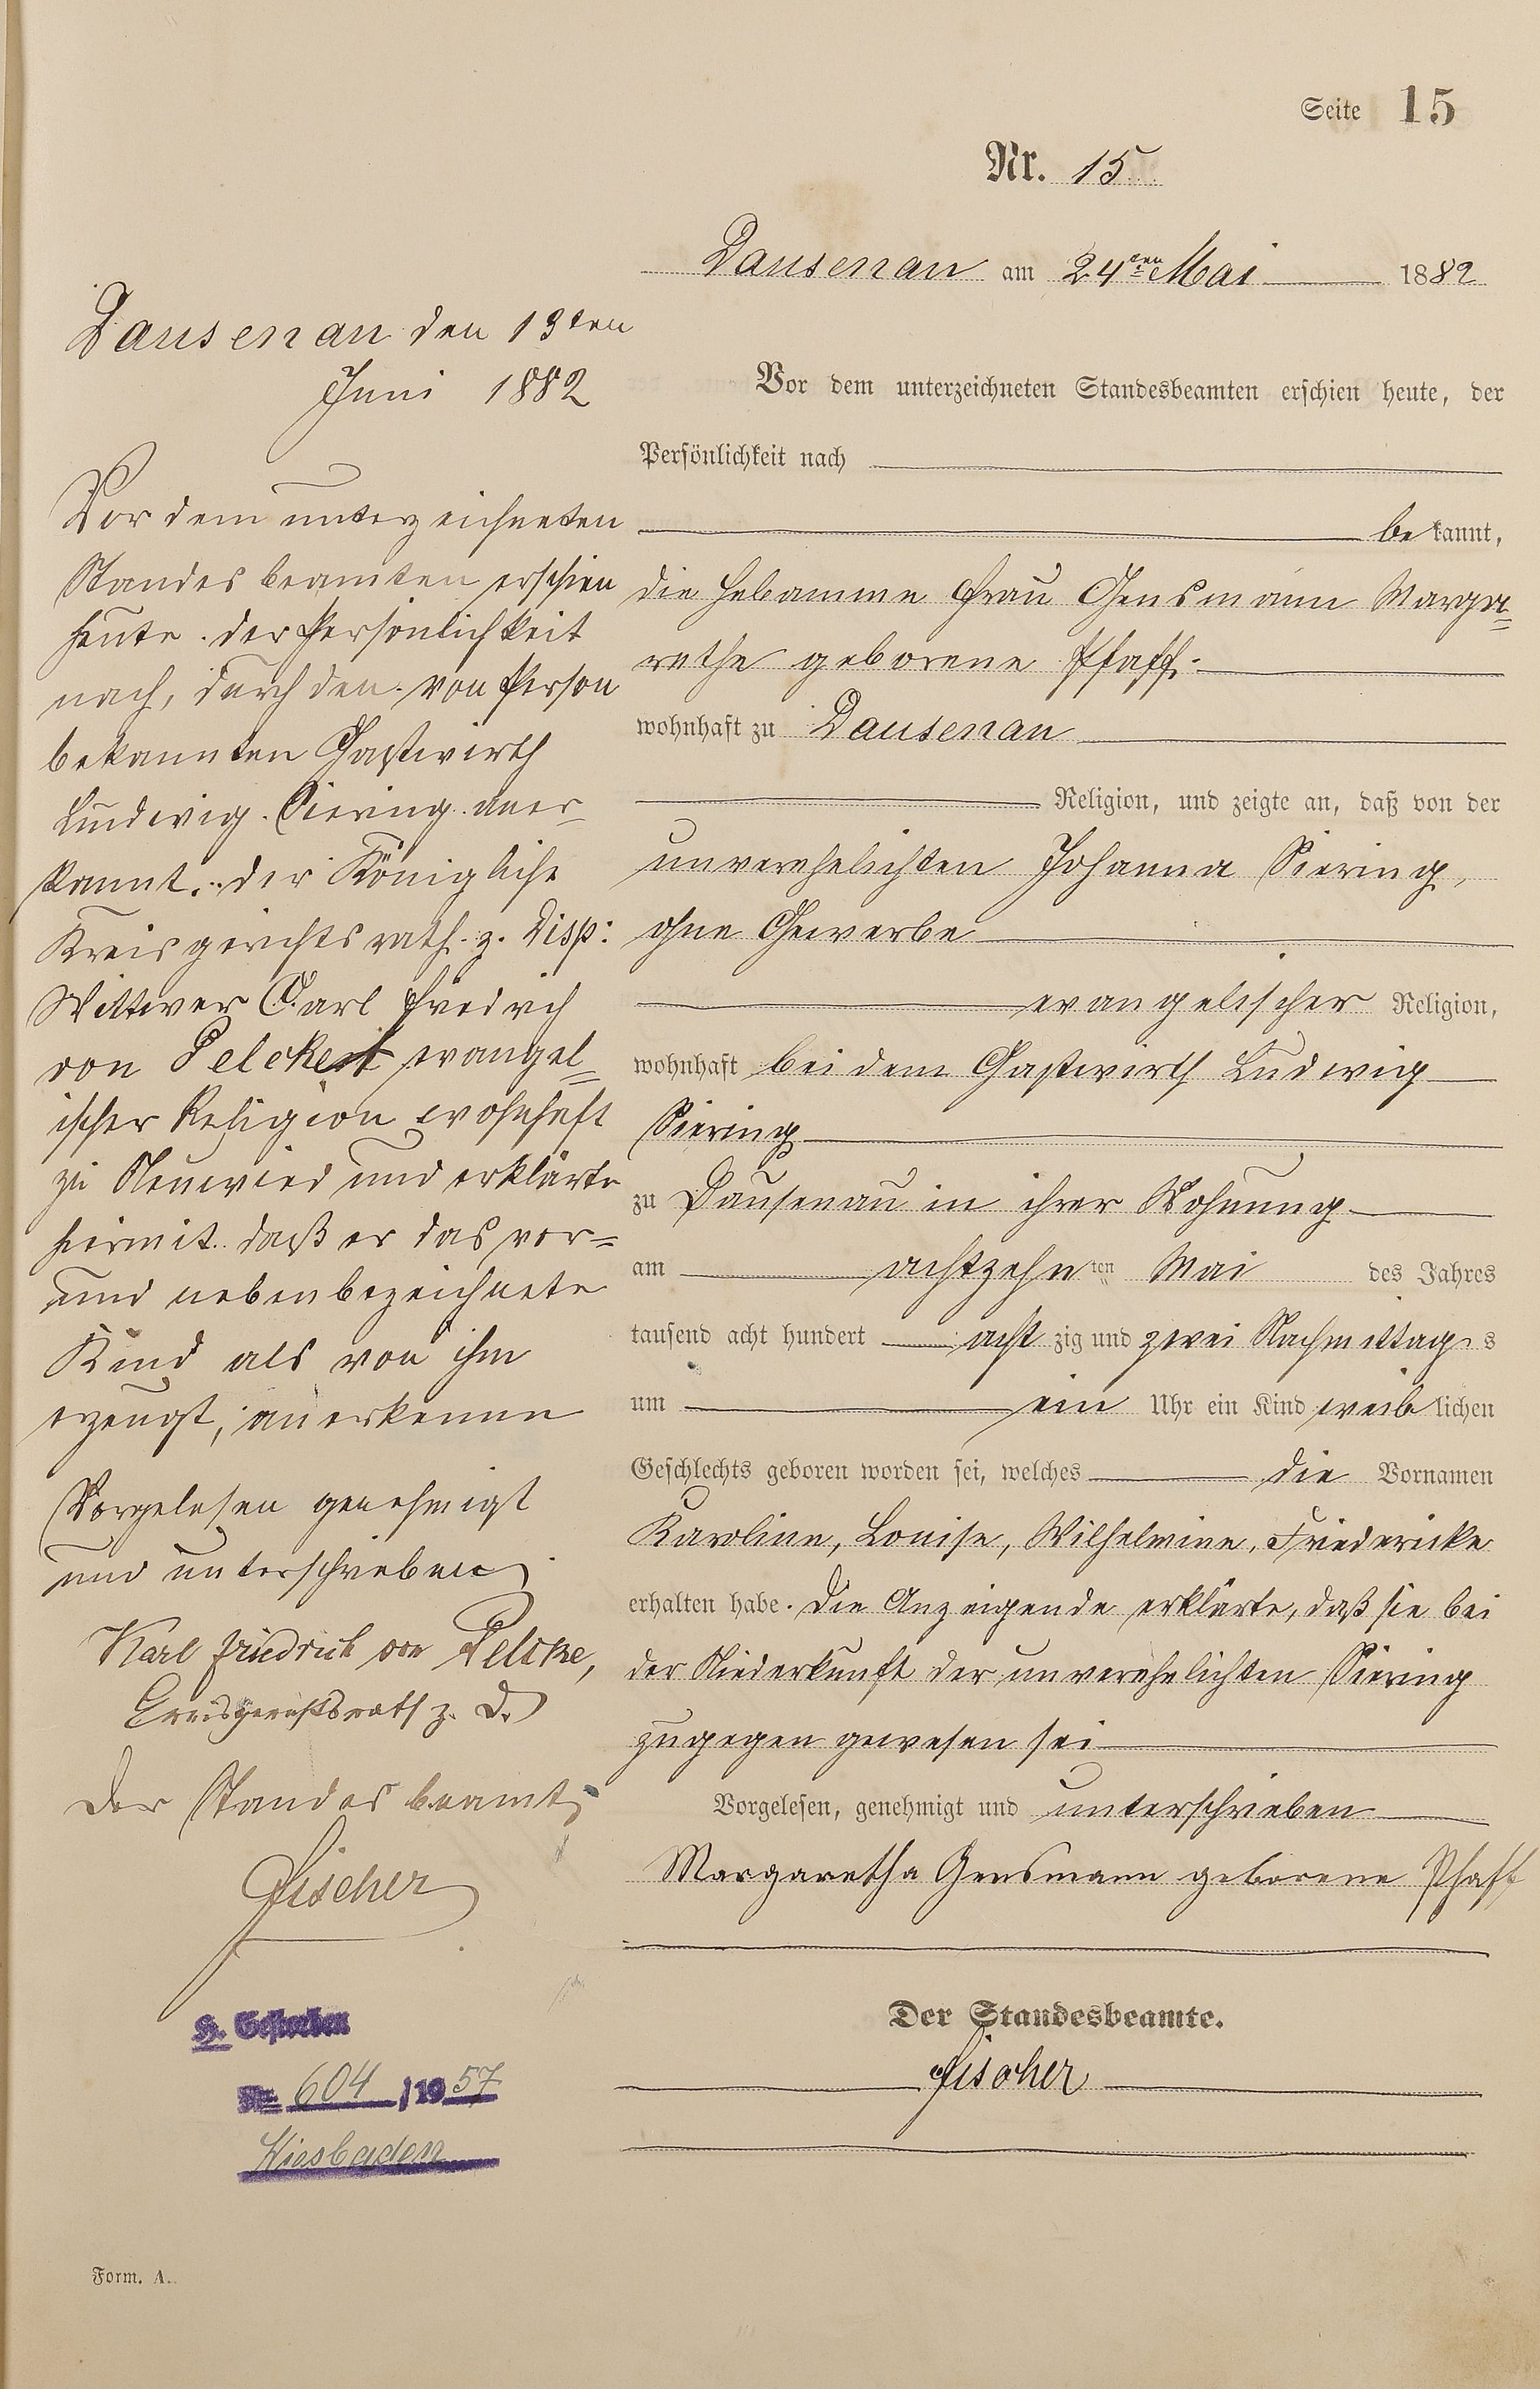 Seite 15
Nr. 15
Dausenau am 24ten Mai 1882
Vor dem unterzeichneten Standesbeamten erschien heute, der
Persönlichkeit nach
be kannt,
die Hebamme Frau Gensmann Marga=
rethe geborene Pfaff.
wohnhaft zu Dausenau
Religion, und zeigte an, daß von der
unverehelichten Johanna Siering,
ohne Gewerbe
evangelischer Religion,
wohnhaft bei dem Gastwirth Ludwig
Siering
zu Dausenau in ihrer Wohnung
am achtzehn ten Mai des Jahres
tausend acht hundert acht zig und zwei Nachmittag s
um ein Uhr ein Kind weib lichen
Geschlechts geboren worden sei, welches die Vornamen
Karoline, Louise, Wilhelmine, Friedericke
erhalten habe. Die Anzeigende erklärte, daß sie bei
der Niederkunft der unverehelichten Siering
zugegen gewesen sei
Vorgelesen, genehmigt und unterschrieben
Margaretha Gensmann geborene Pfaff
Der Standesbeamte.
Fischer
Dausenau den 13ten
Juni 1882
Vor dem unterzeichneten
Standesbeamten erschien
heute. der Persönlichkeit
nach, durch den. von Person
bekannten Gastwirth
Ludwig. Siering. aner=
kannt. der Königliche
Kreisgerichtsrath. z. Disp:
Wittwer Carl Friedrich
von Pelcke evangel=
ischer Religion wohnhaft
zu Neuwied und erklärte
hiermit. daß er das vor=
und nebenbezeichnete
Kind als von ihm
erzeugt, anerkenne
Vorgelesen genehmigt
und unterschrieben
Karl Friedrich von Pelcke,
Kreisgerichtsrath z. D.
Der Standesbeamte
Fischer
H. Gestorben
Nr. 604 /1957
Wiesbaden
Form. A.